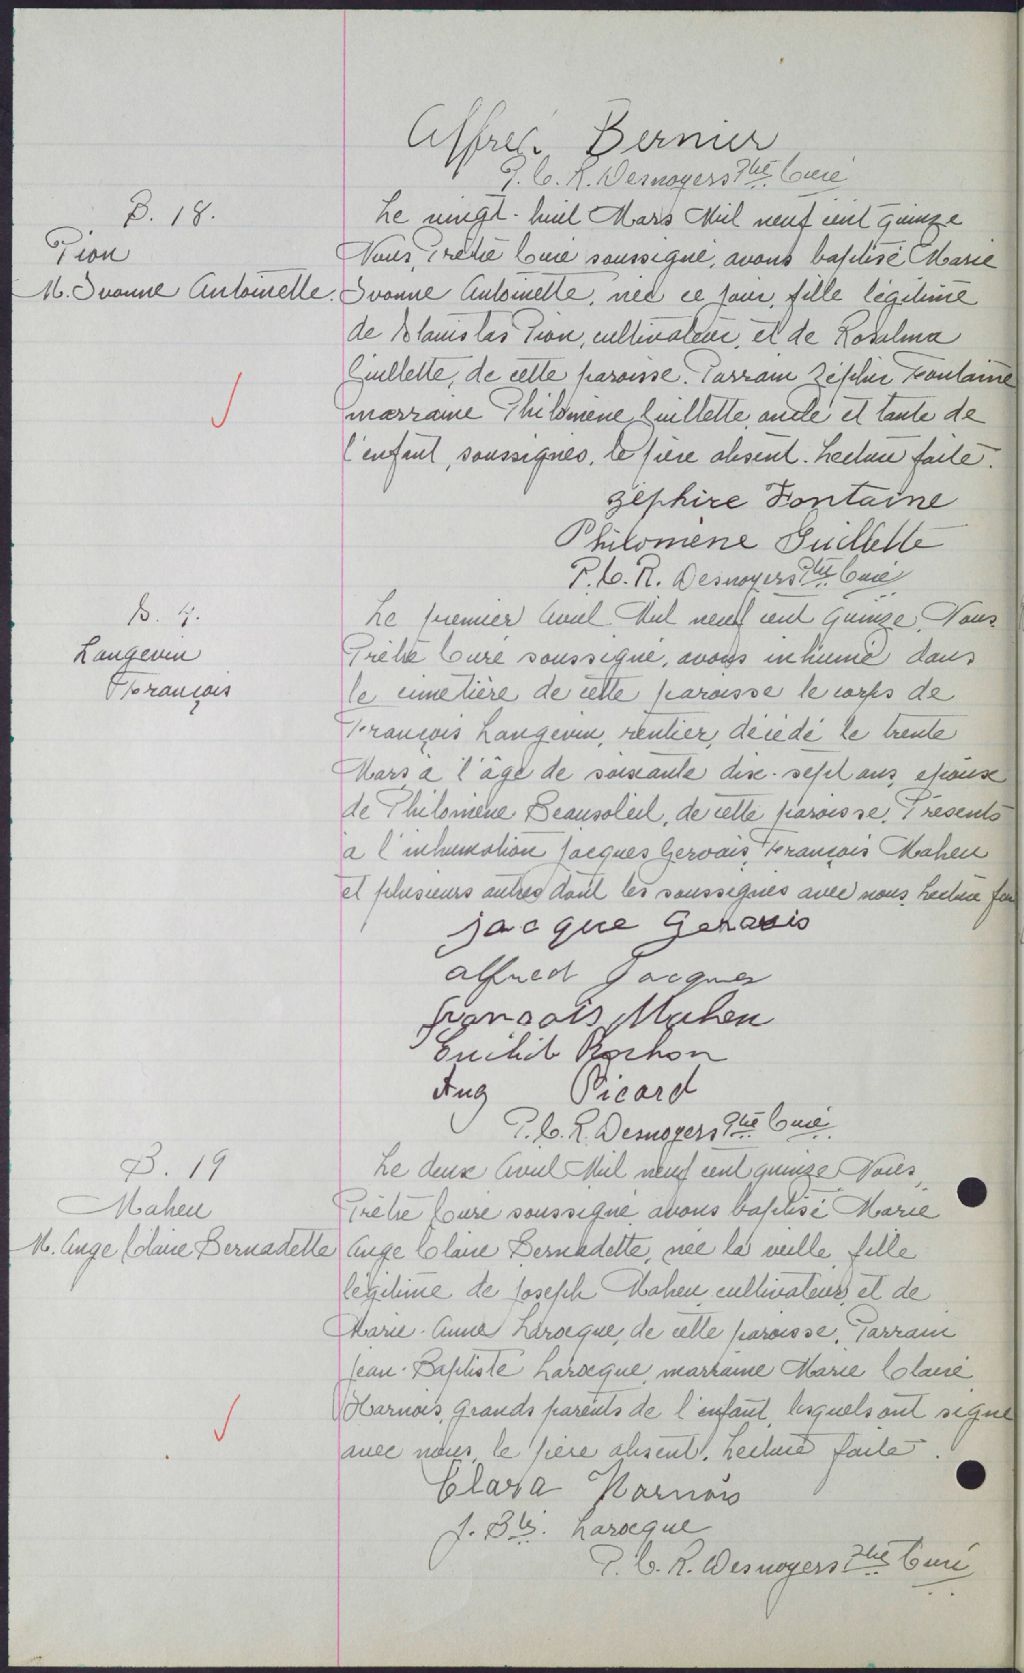 Alfred Bernier
P. C. R. Desnoyers Ptre Curé
B. 18.
Pion
M. Ivonne Antoinette.
Le vingt-huit Mars Mil neuf cent quinze
Nous, Prêtre Curé soussigné, avons baptisé Marie
Ivonne Antoinette, née ce jour, fille légitime
de Stanislas Pion, cultivateur, et de Rosalma
Guillette, de cette paroisse. Parrain Zéphir Fontaine
marraine Philomène Guillette, oncle et tante de
l'enfant, soussignés, le père absent. Lecture faite.
Zéphire Fontaine
Philomène Guillette
P. C. R. Desnoyers Ptre Curé
S. 4.
Langevin
François
Le premier Avril Mil neuf cent quinze, Nous
Prêtre Curé soussigné, avons inhumé dans
le cimetière de cette paroisse le corps de
François Langevin, rentier, décédé le trente
Mars à l'âge de soixante dix-sept ans, époux
de Philomène Beausoleil, de cette paroisse. Présents
à l'inhumation Jacques Gervais, François Maheu
et plusieurs autres dont les soussignés avec nous. Lecture
jacque Gervais
alfred Jacques
françois Maheu
Rochon
Aug Picard
P. C. R. Desnoyers Ptre Curé
B. 19
Maheu
M. Ange Claire Bernadette
Le deux Avril Mil neuf cent quinze Nous,
Prêtre Curé soussigné avons baptisé Marie
Ange Claire Bernadette, née la veille, fille
légitime de Joseph Maheu, cultivateur, et de
Marie-Anne Larocque, de cette paroisse. Parrain
Jean-Baptiste Larocque, marraine Marie Claire
Harnois, grands parents de l'enfant, lesquels ont signé
avec nous, le père absent. Lecture faite.
Clara Harnois
J. Bte. Larocque
P. C. R. Desnoyers Ptre Curé